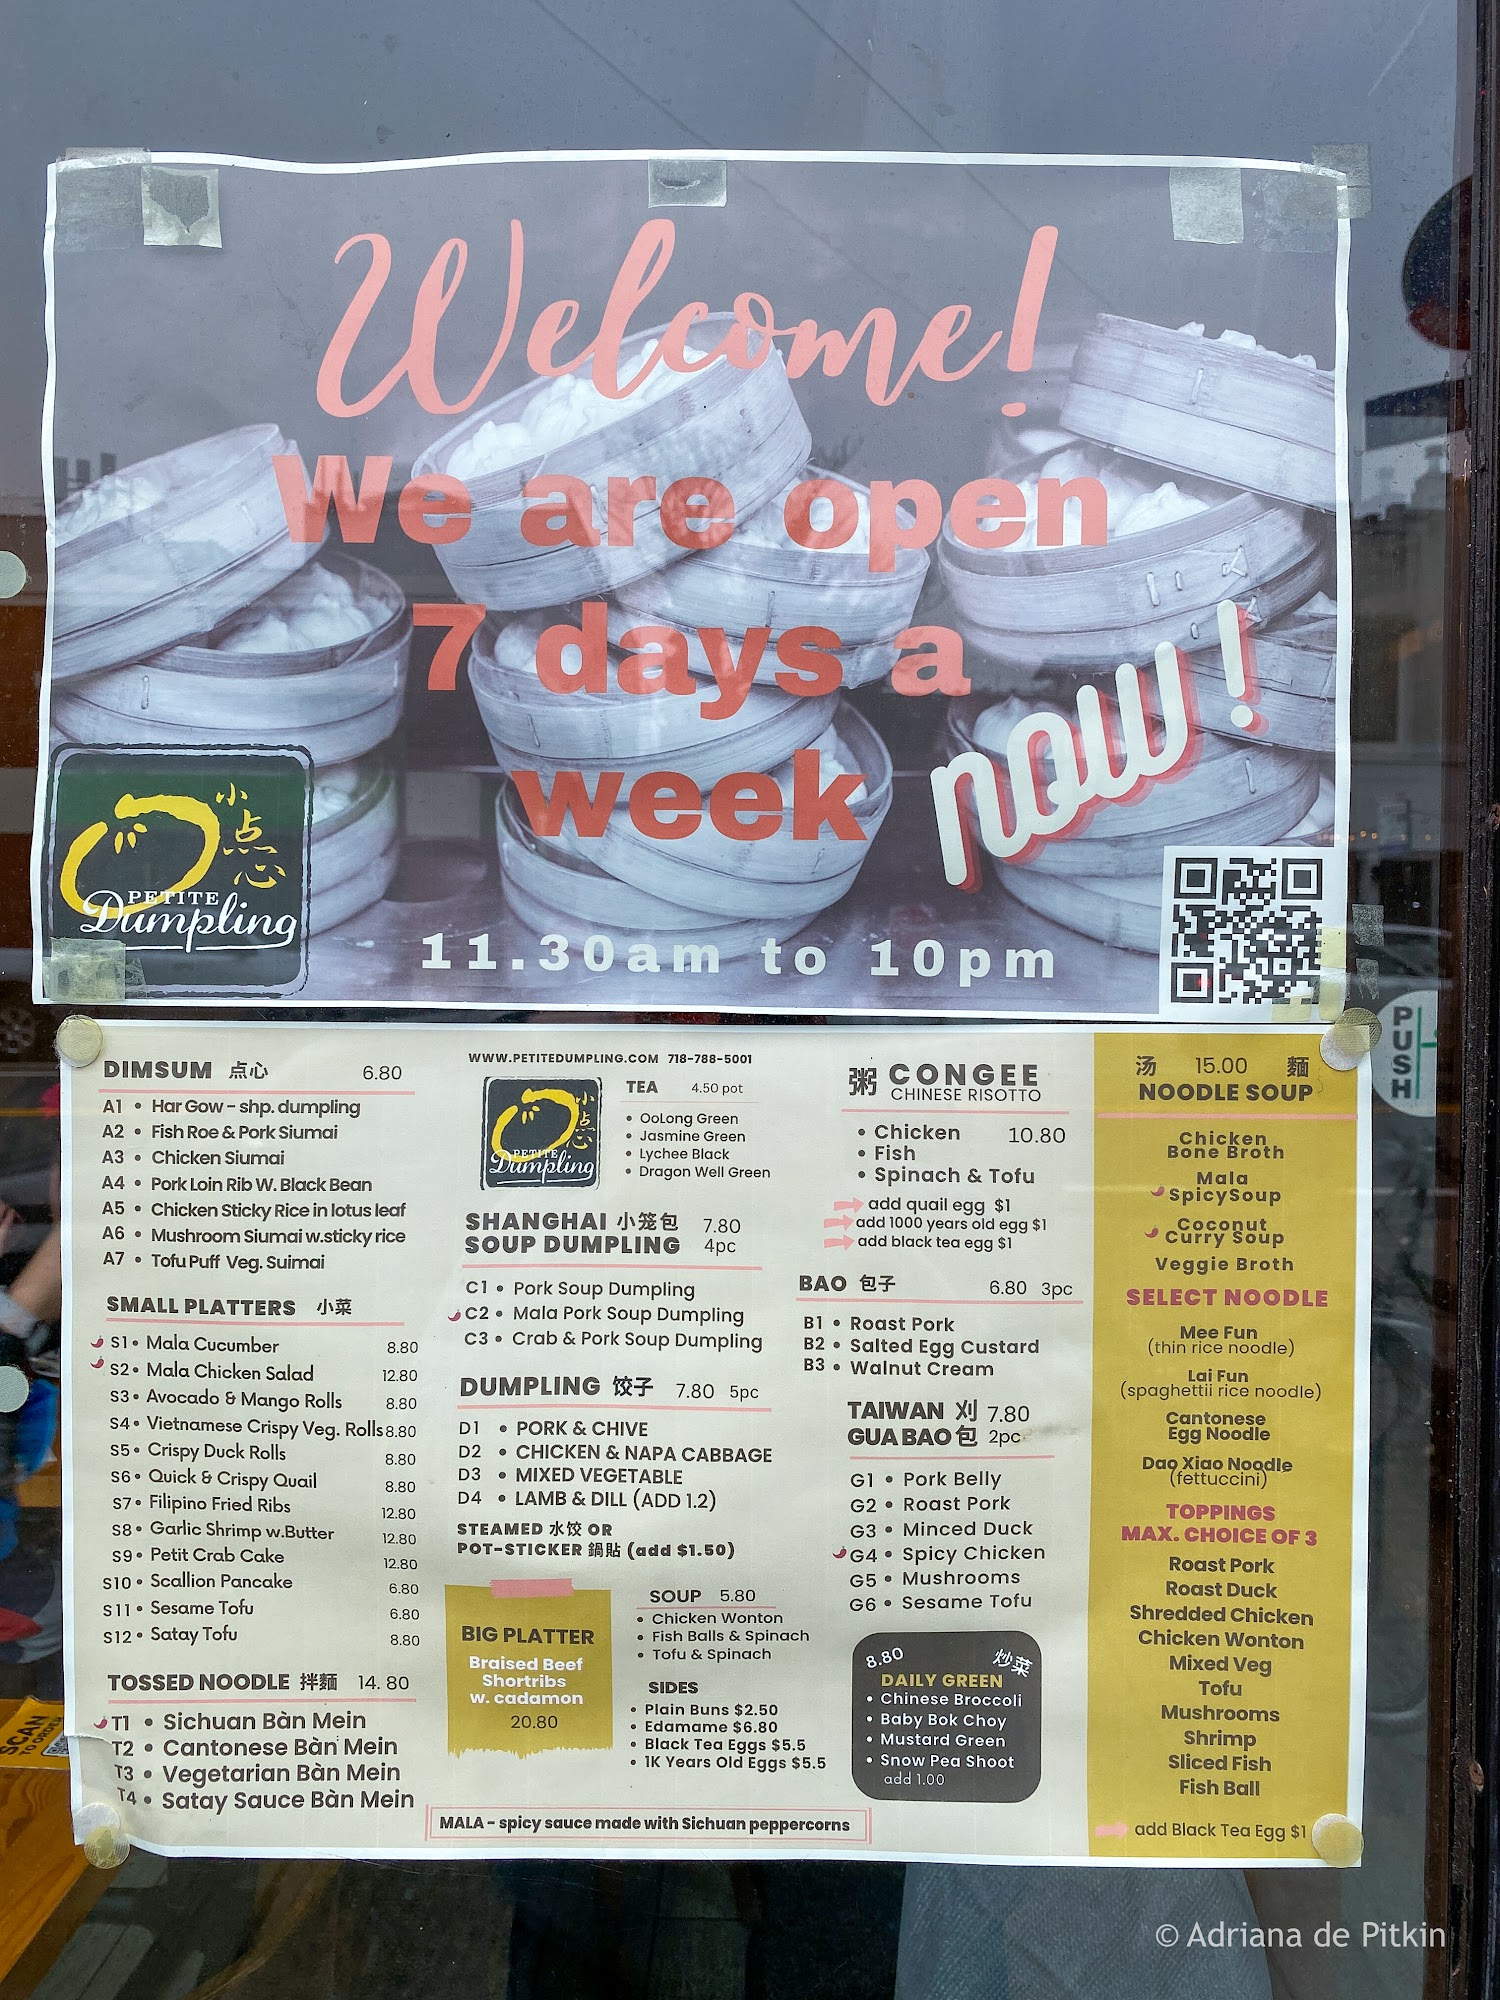 Welcome!
We are open
7 days a
week
now!
小点心
PETITE
Dumpling
11.30am to 10pm
PUSH
DIMSUM 点心 6.80
A1 • Har Gow - shp. dumpling
A2 • Fish Roe & Pork Siumai
A3 • Chicken Siumai
A4 • Pork Loin Rib W. Black Bean
A5 • Chicken Sticky Rice in lotus leaf
A6 • Mushroom Siumai w.sticky rice
A7 • Tofu Puff Veg. Suimai
SMALL PLATTERS 小菜
S1 • Mala Cucumber 8.80
S2 • Mala Chicken Salad 12.80
S3 • Avocado & Mango Rolls 8.80
S4 • Vietnamese Crispy Veg. Rolls 8.80
S5 • Crispy Duck Rolls 8.80
S6 • Quick & Crispy Quail 8.80
S7 • Filipino Fried Ribs 12.80
S8 • Garlic Shrimp w.Butter 12.80
S9 • Petit Crab Cake 12.80
S10 • Scallion Pancake 6.80
S11 • Sesame Tofu 6.80
S12 • Satay Tofu 8.80
TOSSED NOODLE 拌麵 14. 80
T1 • Sichuan Bàn Mein
T2 • Cantonese Bàn Mein
T3 • Vegetarian Bàn Mein
T4 • Satay Sauce Bàn Mein
WWW.PETITEDUMPLING.COM 718-788-5001
小点心
PETITE
Dumpling
TEA 4.50 pot
• OoLong Green
• Jasmine Green
• Lychee Black
• Dragon Well Green
SHANGHAI 小笼包 7.80
SOUP DUMPLING 4pc
C1 • Pork Soup Dumpling
C2 • Mala Pork Soup Dumpling
C3 • Crab & Pork Soup Dumpling
DUMPLING 饺子 7.80 5pc
D1 • PORK & CHIVE
D2 • CHICKEN & NAPA CABBAGE
D3 • MIXED VEGETABLE
D4 • LAMB & DILL (ADD 1.2)
STEAMED 水饺 OR
POT-STICKER 鍋貼 (add $1.50)
BIG PLATTER
Braised Beef
Shortribs
w. cadamon
20.80
SOUP 5.80
• Chicken Wonton
• Fish Balls & Spinach
• Tofu & Spinach
SIDES
• Plain Buns $2.50
• Edamame $6.80
• Black Tea Eggs $5.5
• 1K Years Old Eggs $5.5
MALA - spicy sauce made with Sichuan peppercorns
粥 CONGEE
CHINESE RISOTTO
• Chicken 10.80
• Fish
• Spinach & Tofu
add quail egg $1
add 1000 years old egg $1
add black tea egg $1
BAO 包子 6.80 3pc
B1 • Roast Pork
B2 • Salted Egg Custard
B3 • Walnut Cream
TAIWAN 刈 7.80
GUA BAO 包 2pc
G1 • Pork Belly
G2 • Roast Pork
G3 • Minced Duck
G4 • Spicy Chicken
G5 • Mushrooms
G6 • Sesame Tofu
8.80 炒菜
DAILY GREEN
• Chinese Broccoli
• Baby Bok Choy
• Mustard Green
• Snow Pea Shoot
add 1.00
汤 15.00 麵
NOODLE SOUP
Chicken
Bone Broth
Mala
SpicySoup
Coconut
Curry Soup
Veggie Broth
SELECT NOODLE
Mee Fun
(thin rice noodle)
Lai Fun
(spaghettii rice noodle)
Cantonese
Egg Noodle
Dao Xiao Noodle
(fettuccini)
TOPPINGS
MAX. CHOICE OF 3
Roast Pork
Roast Duck
Shredded Chicken
Chicken Wonton
Mixed Veg
Tofu
Mushrooms
Shrimp
Sliced Fish
Fish Ball
add Black Tea Egg $1
SCAN
TO ORDER
© Adriana de Pitkin